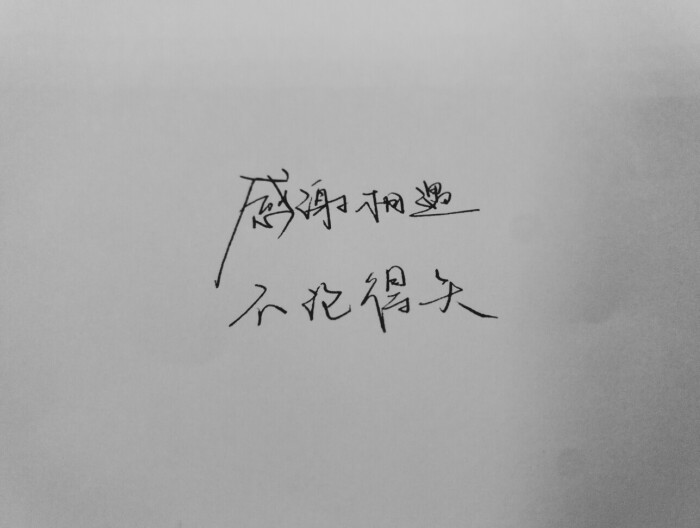 感谢相遇
不抱得失